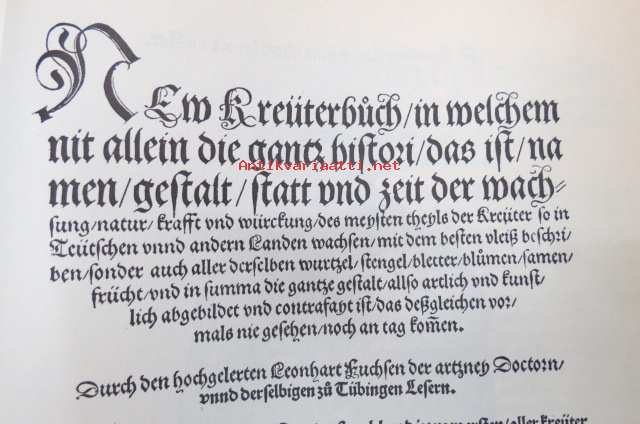 New Kreüterbůch/in welchem
nit allein die gantz histori/das ist/na
men/gestalt/statt vnd zeit der wach-
sung/natur/krafft vnd würckung/des meysten theyls der Kreüter so in
Teütschen vnnd andern Landen wachsen/mit dem besten vleiß beschri/
ben/sonder auch aller derselben wurtzel/stengel/bletter/blůmen/samen/
frücht/vnd in summa die gantze gestalt/allso artlich vnd kunst
lich abgebildet vnd contrafayt ist/das deßgleichen vor/
mals nie gesehen/noch an tag kom̃en.
Durch den hochgelerten Leonhart Fuchsen der artzney Doctorn/
vnnd derselbigen zů Tübingen Lesern.
Antikvariaatti.net